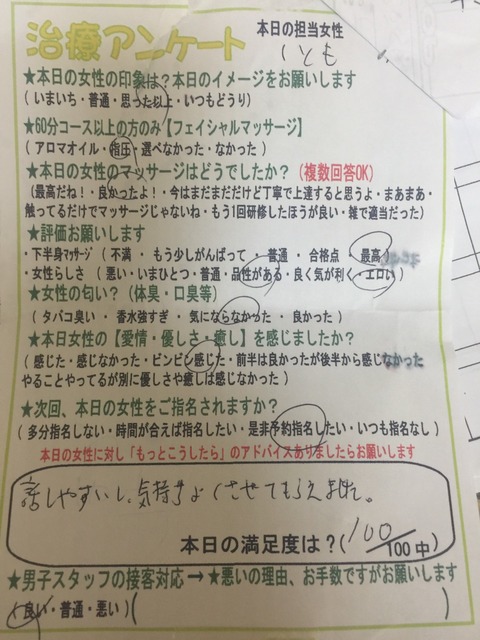 治療アンケート
本日の担当女性
いとも
★本日の女性の印象は?本日のイメージをお願いします
(いまいち・普通・思った以上・いつもどうり)
★60分コース以上の方のみ【フェイシャルマッサージ】
(アロマオイル・指圧・選べなかった・なかった)
★本日の女性のマッサージはどうでしたか?(複数回答OK)
(最高だね!・良かったよ!・今はまだまだだけど丁寧で上達すると思うよ・まあまあ・
触ってるだけでマッサージじゃないね・もう1回研修したほうが良い・雑で適当だった)
★評価お願いします
・下半身マッサージ(不満・もう少しがんばって・普通・合格点・最高)
・女性らしさ(悪い・いまひとつ・普通・品性がある・良く気が利く・エロい)
★女性の匂い?(体臭・口臭等)
(タバコ臭い・香水強すぎ・気にならなかった・良かった)
★本日女性の【愛情・優しさ・癒し】を感じましたか?
(感じた・感じなかった・ビンビン感じた・前半は良かったが後半から感じなかった
やることやってるが別に優しさや癒しは感じなかった)
★次回、本日の女性をご指名されますか?
(多分指名しない・時間が合えば指名したい・是非予約指名したい・いつも指名なし)
本日の女性に対し「もっとこうしたら」のアドバイスありましたらお願いします
話しやすいし、気持ちよくさせてもらえました。
本日の満足度は?(100/100中)
★男子スタッフの接客対応→★悪いの理由、お手数ですがお願いします
(良い・普通・悪い)( )